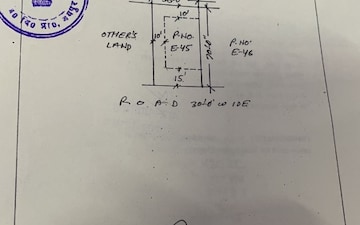 OTHER'S
LAND
10'
P.NO.
E-45
P.NO.
E-46
15'
ROAD 30'-0" WIDE